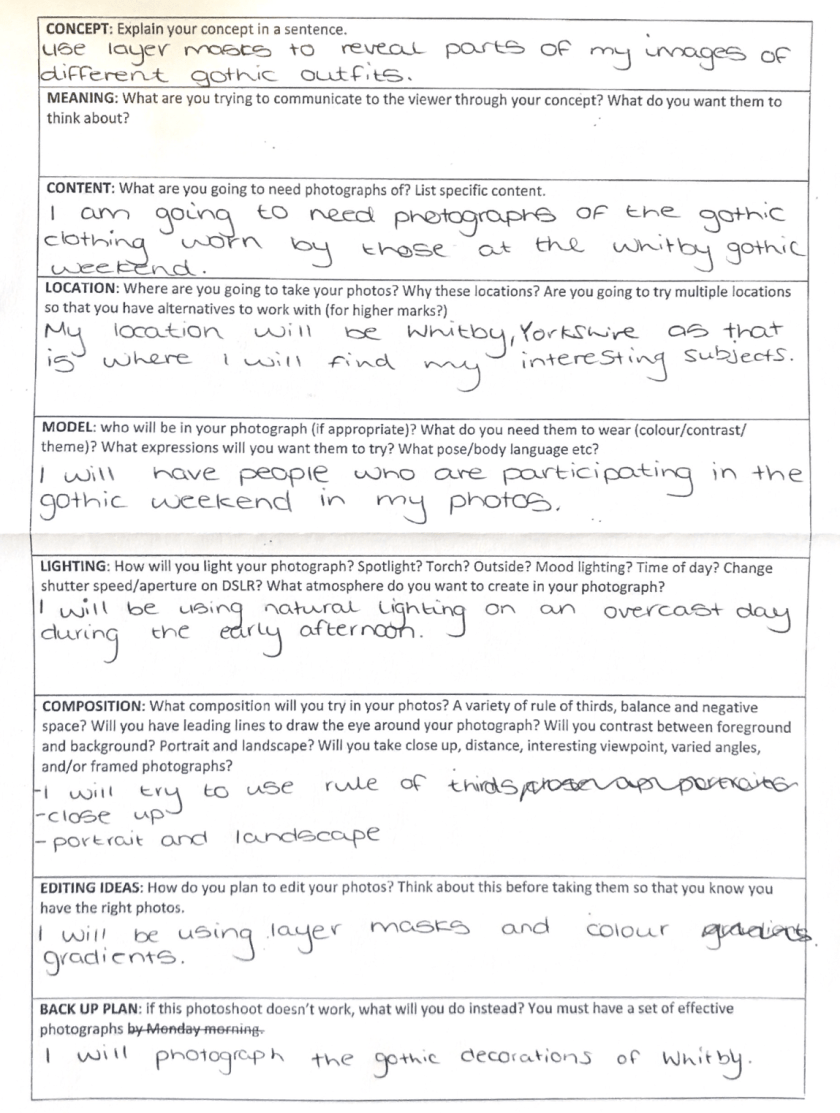 CONCEPT: Explain your concept in a sentence.
use layer masks to reveal parts of my images of
different gothic outfits.
MEANING: What are you trying to communicate to the viewer through your concept? What do you want them to
think about?
CONTENT: What are you going to need photographs of? List specific content.
I am going to need photographs of the gothic
clothing worn by those at the whitby gothic
weekend.
LOCATION: Where are you going to take your photos? Why these locations? Are you going to try multiple locations
so that you have alternatives to work with (for higher marks?)
My location will be Whitby, Yorkshire as that
is where I will find my interesting subjects.
MODEL: who will be in your photograph (if appropriate)? What do you need them to wear (colour/contrast/
theme)? What expressions will you want them to try? What pose/body language etc?
I will have people who are participating in the
gothic weekend in my photos.
LIGHTING: How will you light your photograph? Spotlight? Torch? Outside? Mood lighting? Time of day? Change
shutter speed/aperture on DSLR? What atmosphere do you want to create in your photograph?
I will be using natural lighting on an overcast day
during the early afternoon.
COMPOSITION: What composition will you try in your photos? A variety of rule of thirds, balance and negative
space? Will you have leading lines to draw the eye around your photograph? Will you contrast between foreground
and background? Portrait and landscape? Will you take close up, distance, interesting viewpoint, varied angles,
and/or framed photographs?
-I will try to use rule of thirds, close up portraits
-close up
- portrait and landscape
EDITING IDEAS: How do you plan to edit your photos? Think about this before taking them so that you know you
have the right photos.
I will be using layer masks and colour gradients
gradients.
BACK UP PLAN: if this photoshoot doesn't work, what will you do instead? You must have a set of effective
photographs by Monday morning.
I will photograph the gothic decorations of Whitby.